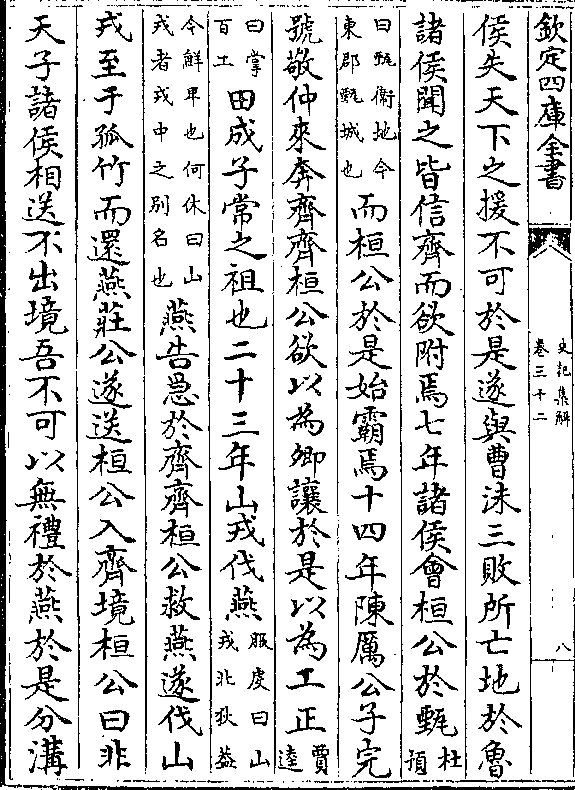 欽定四庫全書
史記集解
卷三十二
八
侯失天下之援不可於是遂與曹沬三敗所亡地於魯
諸侯聞之皆信齊而欲附焉七年諸侯會桓公於甄杜預
曰甄衞地今東郡甄城也而桓公於是始霸焉十四年陳厲公子完
號敬仲來奔齊齊桓公欲以為卿讓於是以為工正賈逵
曰掌百工田成子常之祖也二十三年山戎伐燕服虔曰山戎北狄蓋
今鮮卑也何休曰山戎者戎中之别名也燕告急於齊齊桓公救燕遂伐山
戎至于孤竹而還燕莊公遂送桓公入齊境桓公曰非
天子諸侯相送不出境吾不可以無禮於燕於是分溝